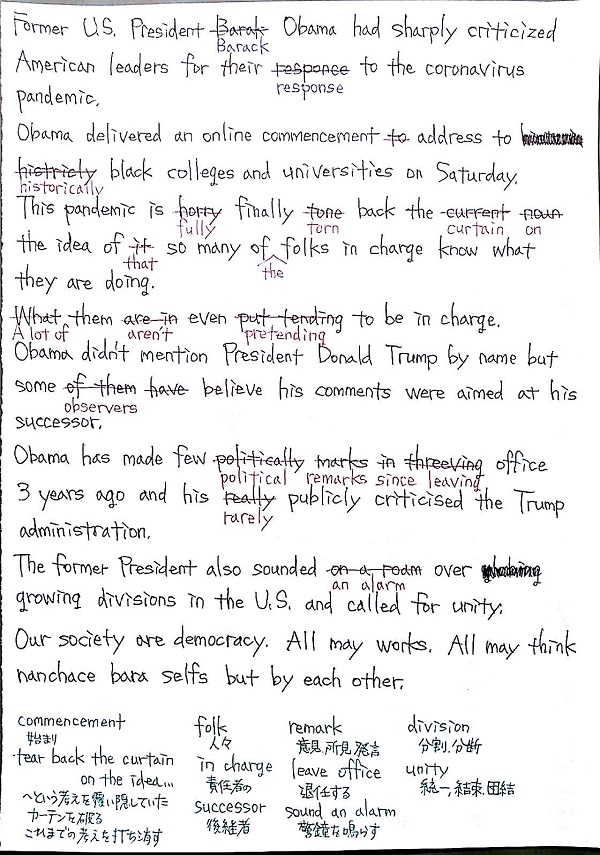 Former U.S. President Barak Obama had sharply criticized
Barack
American leaders for their responce to the coronavirus
response
pandemic.
Obama delivered an online commencement to address to
histricly black colleges and universities on Saturday.
historically
This pandemic is horry finally tone back the current noun
fully torn curtain on
the idea of it so many of folks in charge know what
that the
they are doing.
What them are in even put tending to be in charge.
A lot of aren't pretending
Obama didn't mention President Donald Trump by name but
some of them have believe his comments were aimed at his
observers
successor.
Obama has made few politically marks in threeving office
political remarks since leaving
3 years ago and his really publicly criticised the Trump
rarely
administration.
The former President also sounded on a roam over
an alarm
growing divisions in the U.S. and called for unity.
Our society are democracy. All may works. All may think
nanchace bara selfs but by each other.
commencement folk remark division
始まり 人々 意見、所見、発言 分割、分断
tear back the curtain in charge leave office unity
on the idea... 責任者の 退任する 統一、結束、団結
〜という考えを覆い隠していた successor sound an alarm
カーテンを破る 後継者 警鐘を鳴らす
これまでの考えを打ち消す